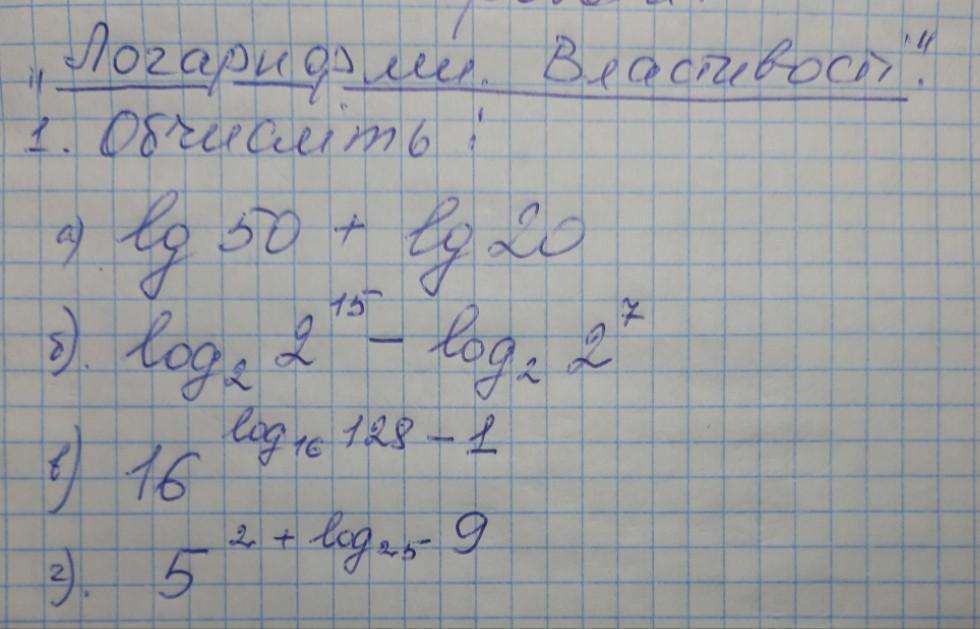 "Логарифми. Властивості."
1. Обчисліть:
а) lg 50 + lg 20
б). log₂ 2¹⁵ - log₂ 2⁷
в) 16^(log₁₆ 128 - 1)
г). 5^(2 + log₂₅ 9)